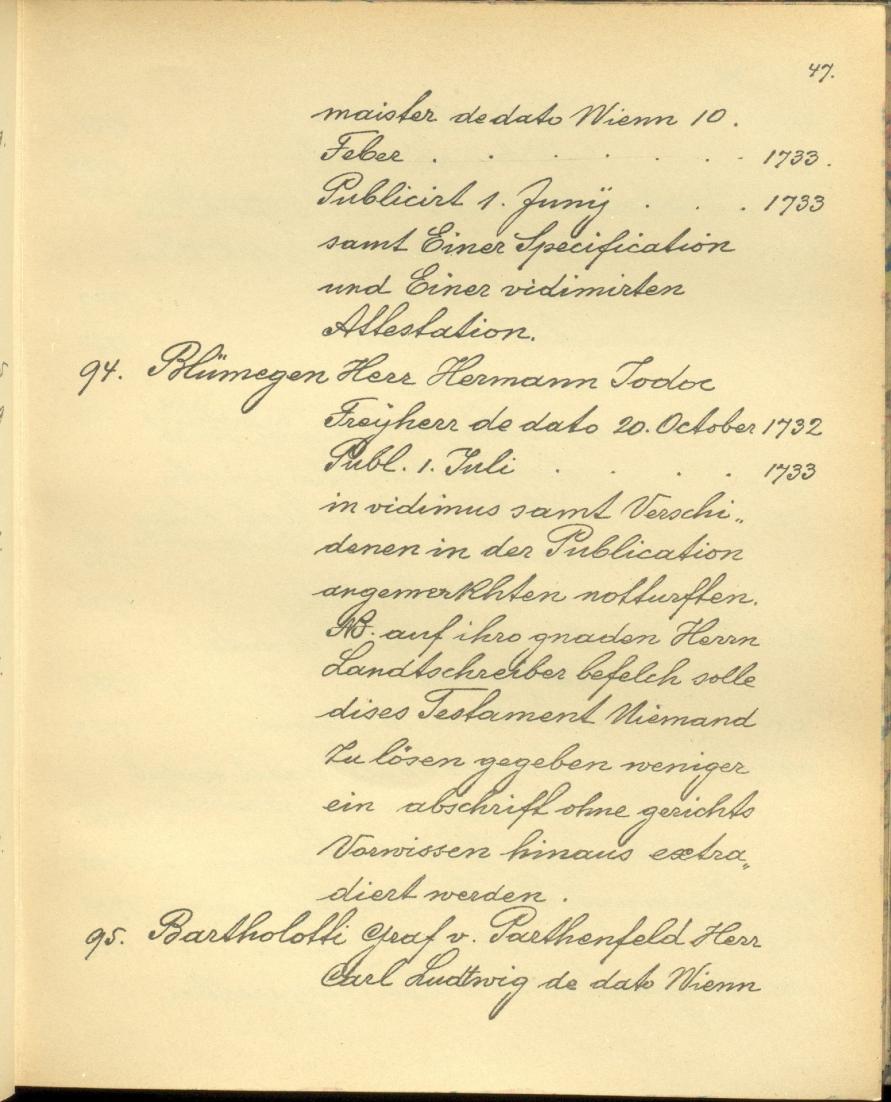 47.
maister de dato Wienn 10.
Feber . . . . . . . 1733.
Publicirt 1. Junÿ . . . 1733
samt Einer Specification
und Einer vidimirten
Attestation.
94. Blümegen Herr Hermann Jodoc
Freÿherr de dato 20. October 1732
Publ. 1. Juli . . . . 1733
in vidimus samt Verschi„
denen in der Publication
angemerkhten notturften.
NB. auf ihro gnaden Herrn
Landtschreiber befelch solle
dises Testament Niemand
Zu lösen gegeben weniger
ein abschrift ohne gerichts
Vorwissen hinaus extra„
diert werden.
95. Bartholotti Graf v. Parthenfeld Herr
Carl Ludtwig de dato Wienn